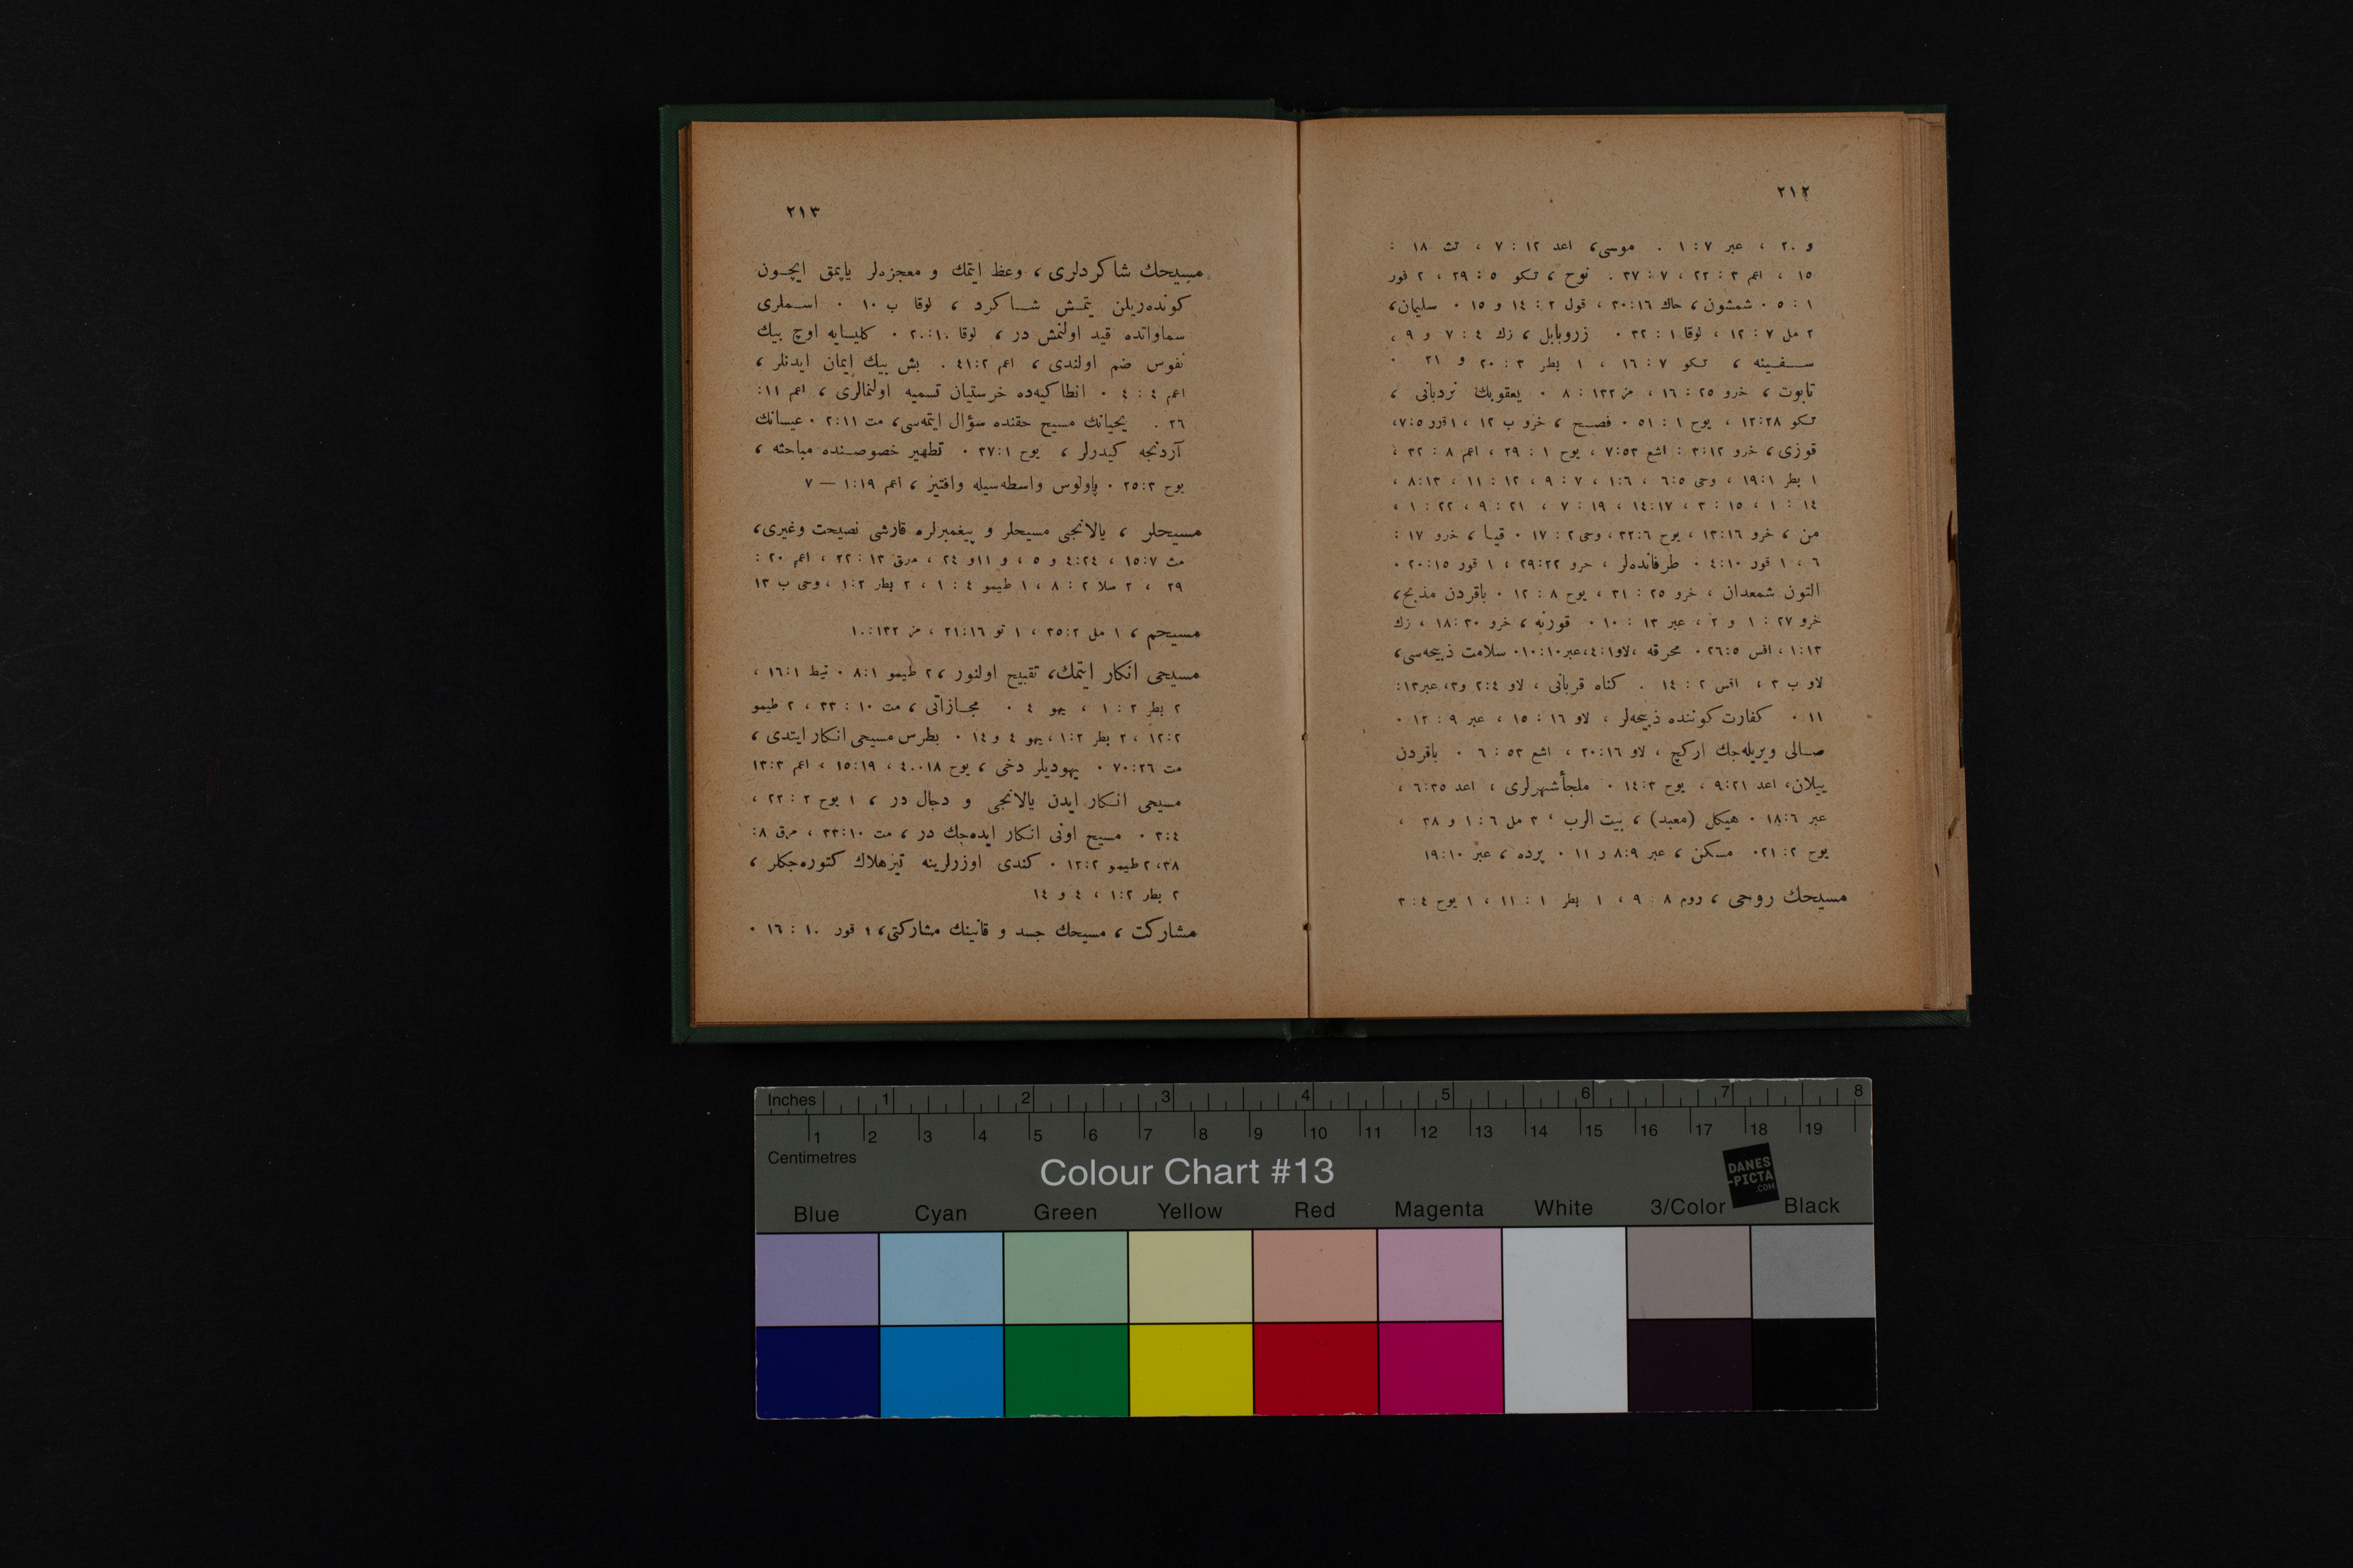 ٢١٢
و ٢٠ ، عبر ٧ : ١ . موسى، اعد ١٢ : ٧ ، تث ١٨ :
١٥ ، اعم ٣ : ٢٢ ، ٧ : ٣٧ . نوح ، تكو ٥ : ٢٩ ، ٢ قور
١ : ٥ ٠ شمشون ، حاك ١٦:٣٠ ، قول ٢ : ١٤ و ١٥ ٠ سليمان،
٢ مل ٧ : ١٢ ، لوقا ١ : ٣٢ ٠ زروبابل ، زك ٤ : ٧ و ٩ ،
سفينه ، تكو ٧ : ١٦ ، ١ بطر ٣ : ٢٠ و ٢١ ٠
تابوت ، خرو ٢٥ : ١٦ ، مز ١٣٢ : ٨ ٠ يعقوبك نردبانى ،
تكو ٢٨:١٢ ، يوح ١ : ٥١ ٠ فصح ، خرو ب ١٢ ، ١قور ٥:٧،
قوزى ، خرو ١٢:٣ : اشع ٥٣:٧ ، يوح ١ : ٢٩ ، اعم ٨ : ٣٢ ؛
١ بطر ١:١٩ ، وحى ٥:٦ ، ٦:١ ، ٧ : ٩ ، ١٢ : ١١ ، ١٣:٨ ،
١٤ : ١ ، ١٥ : ٣ ، ١٧:١٤ ، ١٩ : ٧ ، ٢١ : ٩ ، ٢٢ : ١ ،
من ، خرو ١٦:١٣ ، يوح ٦:٣٢ ، وحى ٢ : ١٧ ٠ قيا ، خرو ١٧ :
٦ ، ١ قور ١٠:٤ ٠ طرفانده‌لر ، خرو ٢٢:٢٩ ، ١ قور ١٥:٢٠ ٠
التون شمعدان ، خرو ٢٥ : ٣١ ، يوح ٨ : ١٢ ٠ باقردن مذبح،
خرو ٢٧ : ١ و ٢ ، عبر ١٣ : ١٠ ٠ قورنه ، خرو ٣٠ : ١٨ ، زك
١٣:١ ، افس ٥:٢٦ ٠ محرقه ،لاو١:٤،عبر١٠:١٠ ٠ سلامت ذبيحه‌سى،
لاو ب ٣ ، افس ٢ : ١٤ . كناه قربانى ، لاو ٤:٢ و٣، عبر١٣:
١١ ٠ كفارت كوننده ذبيحه‌لر ، لاو ١٦ : ١٥ ، عبر ٩ : ١٢ ٠
صالى ويريله‌جك اركچ ، لاو ١٦:٢٠ ، اشع ٥٣ : ٦ ٠ باقردن
ييلان، اعد ٢١:٩ ، يوح ٣:١٤ ٠ ملجأشهرلرى ، اعد ٣٥:٦ ،
عبر ٦:١٨ ٠ هيكل (معبد) ، بيت الرب ، ٣ مل ٦ : ١ و ٣٨ ،
يوح ٢ : ٢١ ٠ مسكن ، عبر ٩:٨ و ١١ ٠ پرده ، عبر ١٠:١٩
مسيحك روحى ، روم ٨ : ٩ ، ١ بطر ١ : ١١ ، ١ يوح ٤ : ٣
٢١٣
مسيحك شاكردلرى ، وعظ ايتمك و معجزه‌لر ياپمق ايچون
كونده‌ريلن يتمش شاكرد ، لوقا ب ١٠ ٠ اسملرى
سماواتده قيد اولنمش در ، لوقا ١٠:٢٠ ٠ كليسايه اوچ بيك
نفوس ضم اولندى ، اعم ٢:٤١ . بش بيك ايمان ايدنلر ،
اعم ٤ : ٤ ٠ انطاكيه‌ده خرستيان تسميه اولنمالرى ، اعم ١١ :
٢٦ . يحيانك مسيح حقنده سؤال ايتمه‌سى، مت ١١:٢ ٠ عيسانك
آردنجه كيدرلر ، يوح ١:٣٧ ٠ تطهير خصوصنده مباحثه ،
يوح ٣:٢٥ ٠ پاولوس واسطه‌سيله وافتيز ، اعم ١٩:١ — ٧
مسيحلر ، يالانجى مسيحلر و پيغمبرلره قارشى نصيحت وغيرى،
مت ٧:١٥ ، ٢٤:٤ و ٥ ، و ١١و ٢٤ ، مرق ١٣ : ٢٢ ، اعم ٢٠ :
٢٩ ، ٢ سلا ٢ : ٨ ، ١ طيمو ٤ : ١ ، ٢ بطر ٢:١ ، وحى ب ١٣
مسيحم ، ١ مل ٢:٣٥ ، ١ تو ١٦:٢١ ، مز ١٣٢:١٠
مسيحى انكار ايتمك، تقبيح اولنور ، ٢ طيمو ١:٨ ٠ تيط ١:١٦ ،
٢ بطر ٢ : ١ ، يهو ٤ ٠ مجازاتى ، مت ١٠ : ٣٣ ، ٢ طيمو
٢:١٢ ، ٢ بطر ٢:١ ، يهو ٤ و ١٤ ٠ بطرس مسيحى انكار ايتدى ،
مت ٢٦:٧٠ ٠ يهوديلر دخى ، يوح ١٨:٤٠ ، ١٩:١٥ ، اعم ٣:١٣
مسيحى انكار ايدن يالانجى و دجال در ، ١ يوح ٢ : ٢٢ ،
٤:٣ ٠ مسيح اونى انكار ايده‌جك در ، مت ١٠:٣٣ ، مرق ٨:
٣٨، ٢ طيمو ٢:١٢ ٠ كندى اوزرلرينه تيزهلاك كتوره‌جكلر ،
٢ بطر ٢:١ ، ٤ و ١٤
مشاركت ، مسيحك جسد و قانينك مشاركتى، ١ قور ١٠ : ١٦ ٠
Inches 1 2 3 4 5 6 7 8
1 2 3 4 5 6 7 8 9 10 11 12 13 14 15 16 17 18 19
Centimetres
Colour Chart #13
DANES
-PICTA
.COM
Blue Cyan Green Yellow Red Magenta White 3/Color Black